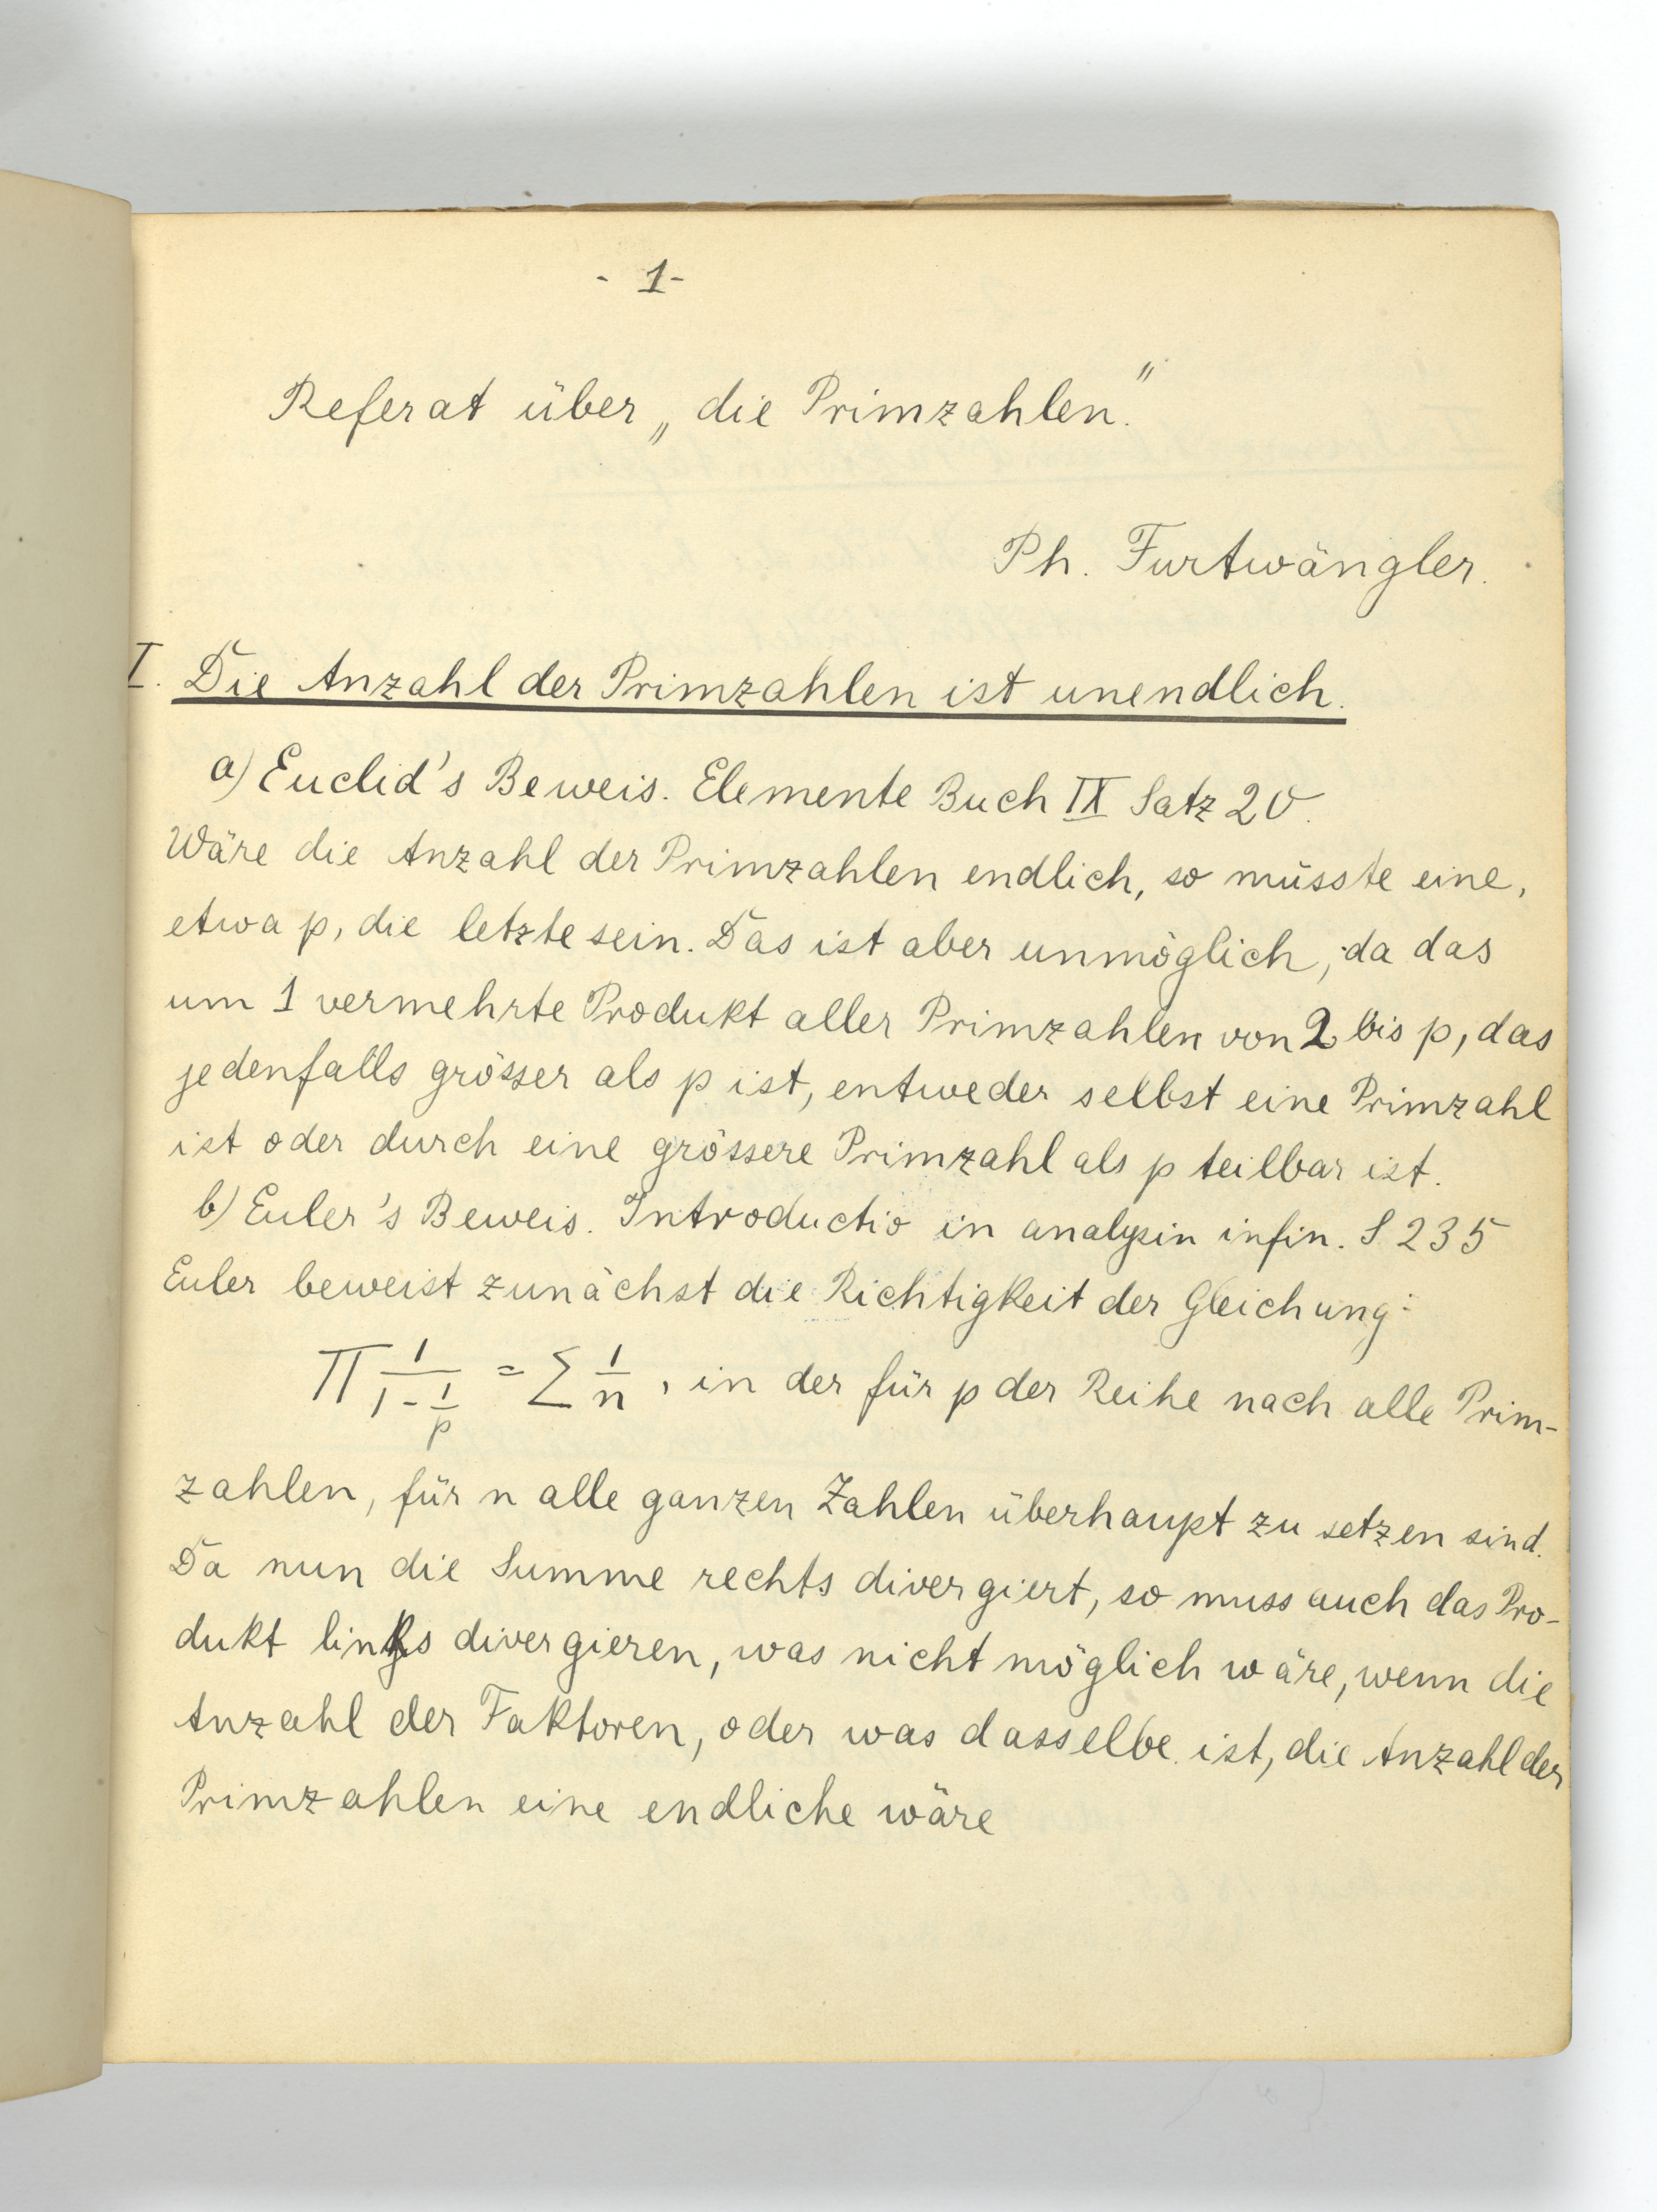 - 1-
Referat über „die Primzahlen."
Ph. Furtwängler.
I. Die Anzahl der Primzahlen ist unendlich.
a) Euclid's Beweis. Elemente Buch IX Satz 20.
Wäre die Anzahl der Primzahlen endlich, so müsste eine,
etwa p, die letzte sein. Das ist aber unmöglich, da das
um 1 vermehrte Produkt aller Primzahlen von 2 bis p, das
jedenfalls grösser als p ist, entweder selbst eine Primzahl
ist oder durch eine grössere Primzahl als p teilbar ist.
b) Euler's Beweis. Introductio in analysin infin. S 235
Euler beweist zunächst die Richtigkeit der Gleichung:
∏ 1/(1 - 1/p) = ∑ 1/n, in der für p der Reihe nach alle Prim-
zahlen, für n alle ganzen Zahlen überhaupt zu setzen sind.
Da nun die Summe rechts divergiert, so muss auch das Pro-
dukt links divergieren, was nicht möglich wäre, wenn die
Anzahl der Faktoren, oder was dasselbe ist, die Anzahl der
Primzahlen eine endliche wäre